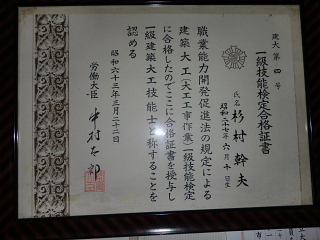 建大第四号
一級技能検定合格証書
氏名 杉村幹夫
昭和二十七年六月十日生
職業能力開発促進法の規定による
建築大工(大工工事作業)一級技能検定
に合格したのでここに合格証書を授与し
一級建築大工技能士と称することを
認める
昭和六十三年三月二十二日
労働大臣 中村太郎